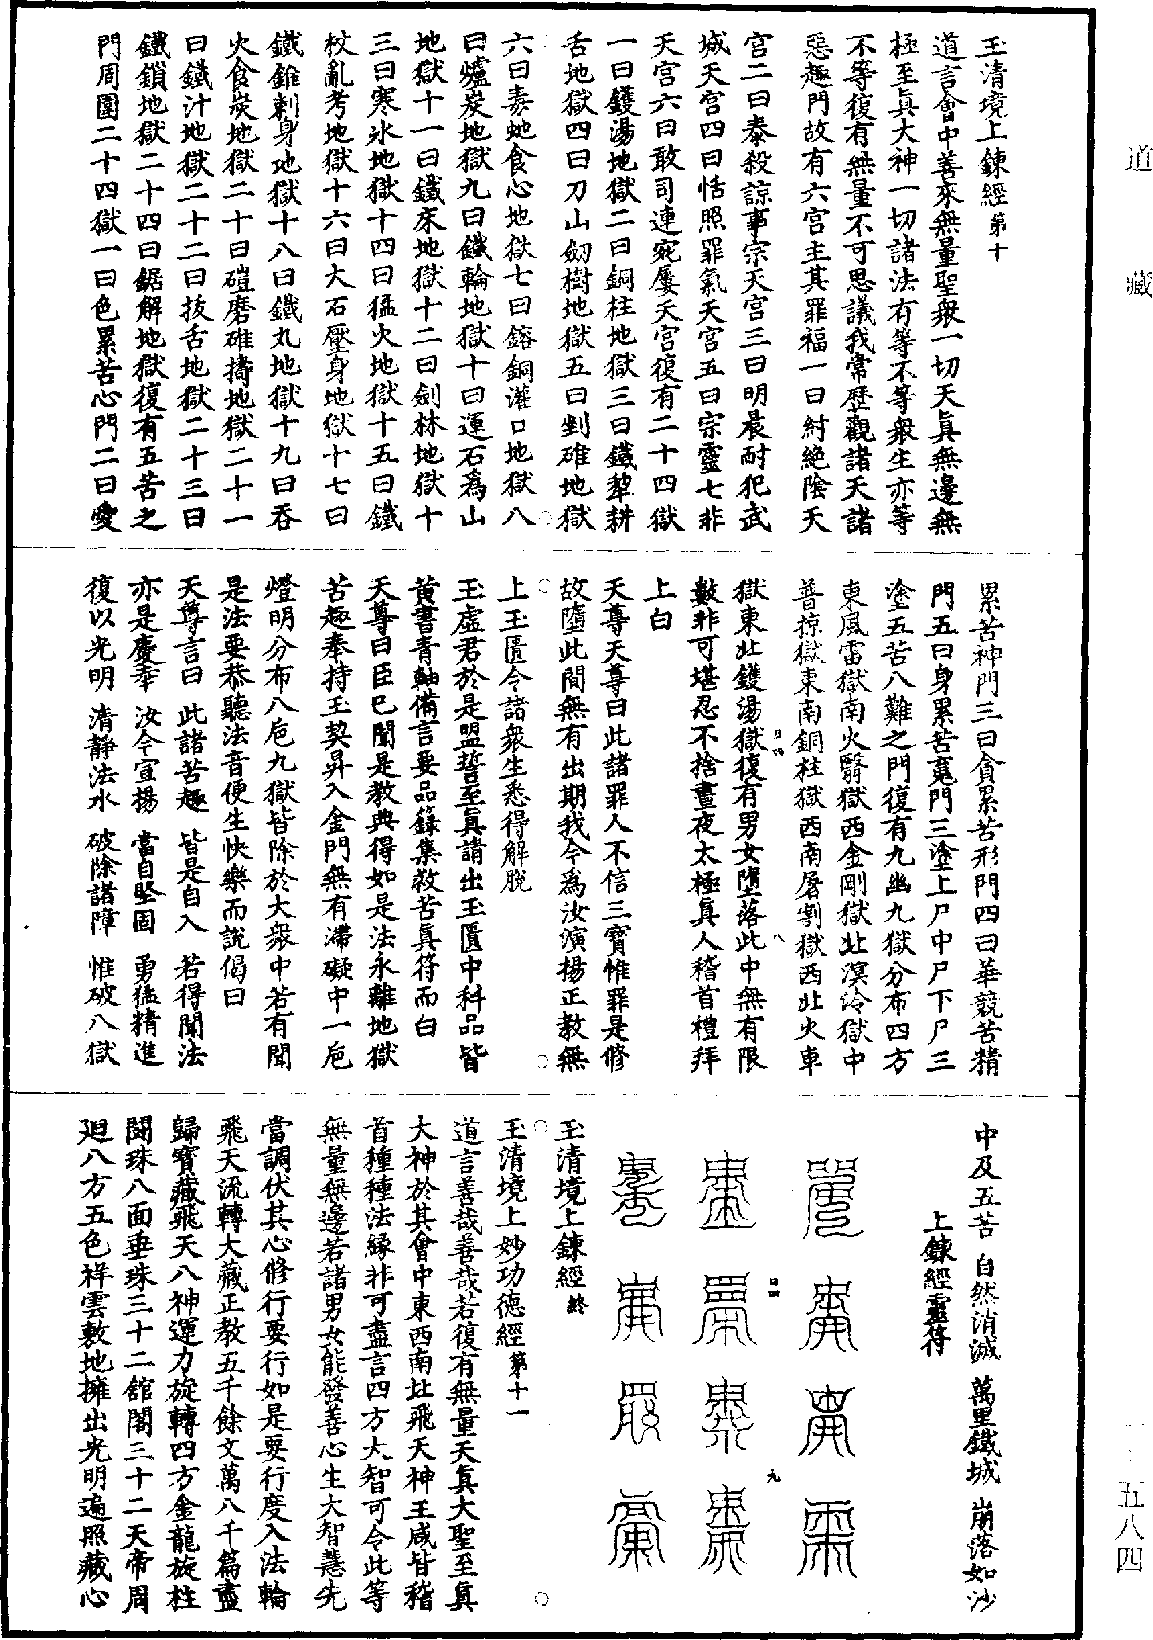 道藏
一·五八四
玉清境上鍊經第十
道言會中善來無量聖衆一切天真無邊無
極至真大神一切諸法有等不等衆生亦等
不等復有無量不可思議我常歷觀諸天諸
惡趣門故有六宮主其罪福一曰紂絕陰天
宮二曰泰殺諒事宗天宮三曰明晨耐犯武
城天宮四曰恬照罪氣天宮五曰宗靈七非
天宮六曰敢司連宛屢天宮復有二十四獄
一曰鑊湯地獄二曰銅柱地獄三曰鐵犂耕
舌地獄四曰刀山劒樹地獄五曰剉碓地獄
六曰毒虵食心地獄七曰鎔銅灌口地獄八
曰爐炭地獄九曰鐵輪地獄十曰運石爲山
地獄十一曰鐵床地獄十二曰劍林地獄十
三曰寒氷地獄十四曰猛火地獄十五曰鐵
杖亂考地獄十六曰大石壓身地獄十七曰
鐵錐刺身地獄十八曰鐵丸地獄十九曰吞
火食炭地獄二十曰磑磨碓擣地獄二十一
曰鐵汁地獄二十二曰拔舌地獄二十三曰
鐵鎖地獄二十四曰鋸解地獄復有五苦之
門周圍二十四獄一曰色累苦心門二曰愛
累苦神門三曰貪累苦形門四曰華競苦精
門五曰身累苦䰟門三塗上尸中尸下尸三
塗五苦八難之門復有九幽九獄分布四方
東風雷獄南火翳獄西金剛獄北溟泠獄中
普掠獄東南銅柱獄西南屠割獄西北火車
獄東北鑊湯獄復有男女墮落此中無有限
數非可堪忍不捨晝夜太極真人稽首禮拜
上白
天尊天尊曰此諸罪人不信三寶惟罪是修
故墮此間無有出期我今爲汝演揚正教無
上玉匱令諸衆生悉得解脫
玉虛君於是盟誓至真請出玉匱中科品皆
黃書青軸備言要品籙集救苦真符而白
天尊曰臣已聞是教典得如是法永離地獄
苦趣奉持玉契昇入金門無有滯礙中一卮
燈明分布八卮九獄皆除於大衆中若有聞
是法要恭聽法音便生快樂而說偈曰
天尊言曰 此諸苦趣 皆是自入 若得聞法
亦是慶奉 汝今宣揚 當自堅固 勇猛精進
復以光明 清静法水 破除諸障 惟破八獄
中及五苦 自然消滅 萬里鐵城 崩落如沙
上鍊經靈符
玉清境上鍊經終
玉清境上妙功德經第十一
道言善哉善哉若復有無量天真大聖至真
大神於其會中東西南北飛天神王咸皆稽
首種種法緣非可盡言四方大智可令此等
無量無邊若諸男女能發善心生大智慧先
當調伏其心修行要行如是要行度入法輪
飛天流轉大藏正教五千餘文萬八千篇盡
歸寶藏飛天八神運力旋轉四方金龍旋柱
開珠八面垂珠三十二舘閣三十二天帝周
廻八方五色祥雲敷地擁出光明遍照藏心